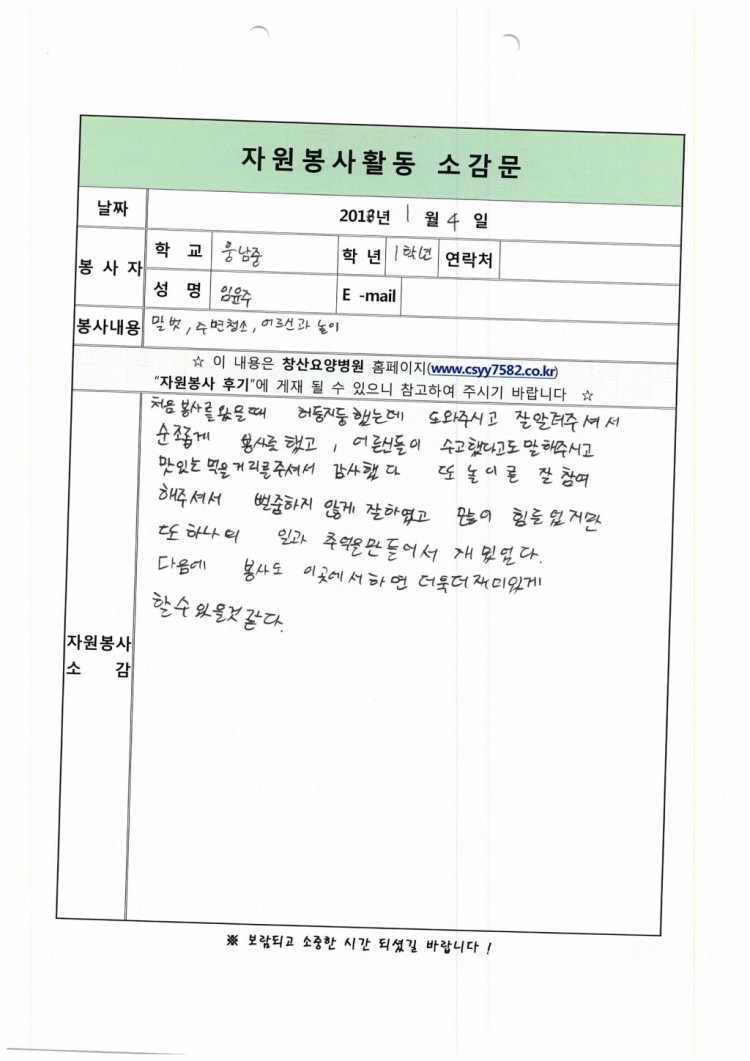 자원봉사활동 소감문
날짜 2018년 1월 4일
봉사자 학교 웅남중 학년 1학년 연락처
성명 임윤주 E-mail
봉사내용 말벗, 주변청소, 어르신과 놀이
☆ 이 내용은 창산요양병원 홈페이지(www.csyy7582.co.kr)
"자원봉사 후기"에 게재 될 수 있으니 참고하여 주시기 바랍니다 ☆
자원봉사 소감
처음 봉사를 왔을때 허둥지둥 했는데 도와주시고 잘알려주셔서
순조롭게 봉사를 했고, 어르신들이 수고했다고도 말해주시고
맛있는 먹을거리를 주셔서 감사했다 또 놀이를 잘 참여
해주셔서 뻘줌하지 않게 잘하였고 많이 힘들었지만
또 하나의 일과 추억을 만들어서 재밌었다.
다음에 봉사도 이곳에서 하면 더욱더 재미있게
할 수 있을것 같다.
※ 보람되고 소중한 시간 되셨길 바랍니다 !